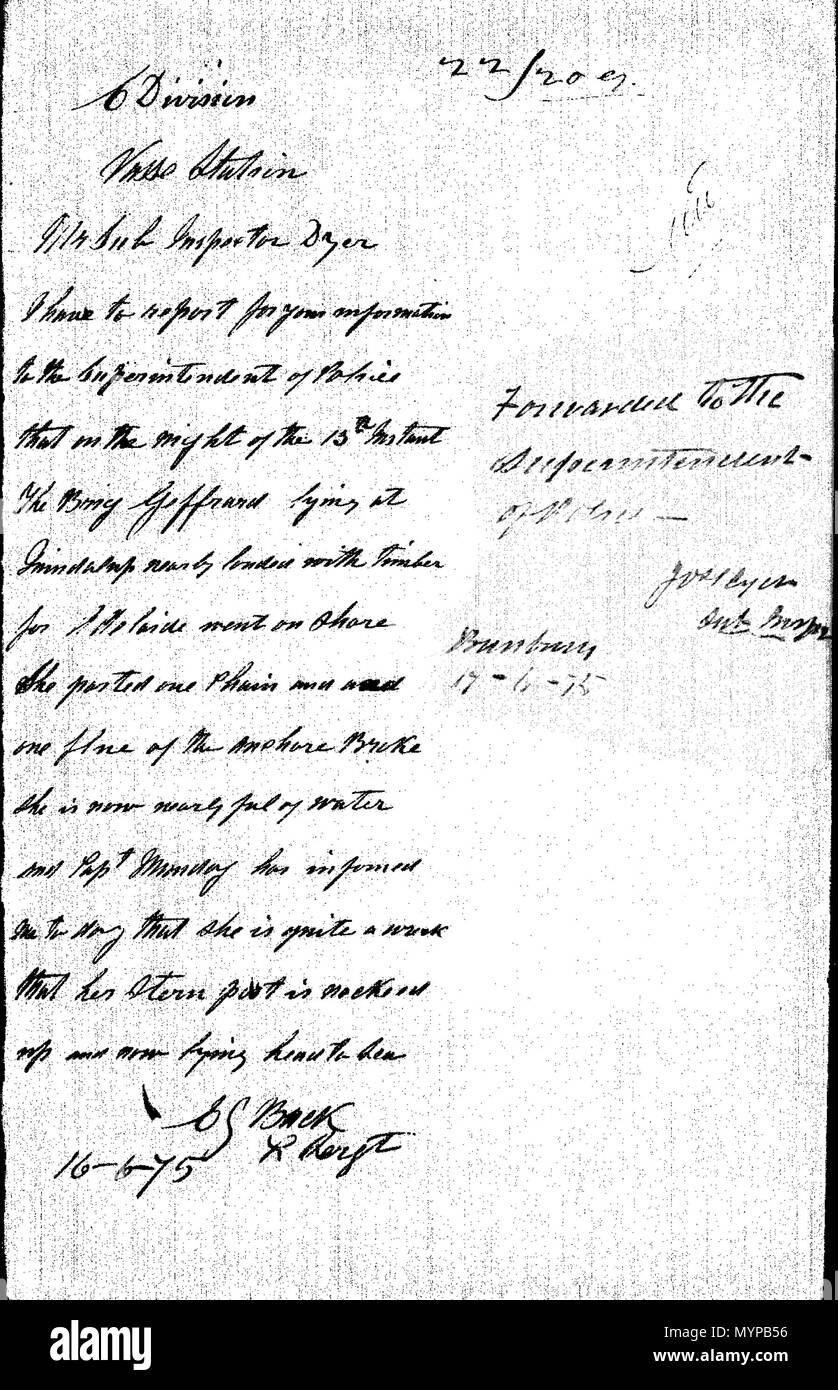 C Division
Vasse Station
Mr Sub Inspector Dyer
I have to report for your information
to the Superintendent of Police
that on the night of the 13th Instant
The Brig Geffrard lying at
Quindalup nearly loaded with timber
for Adelaide went on Shore
She parted one Chain and and
one flue of the anchore Broke
She is now nearly ful of water
and Capt Munday has infomed
me to day that she is quite a wreck
that her Stern post is nocked
up and now lying head to Sea
Back
L Sergt
16-6-75
22/209
Forwarded to the
Superintendent
of Police —
Dyer
Sub Inspr
Bunbury
17-6-75
alamy
Image ID: MYPB56
www.alamy.com